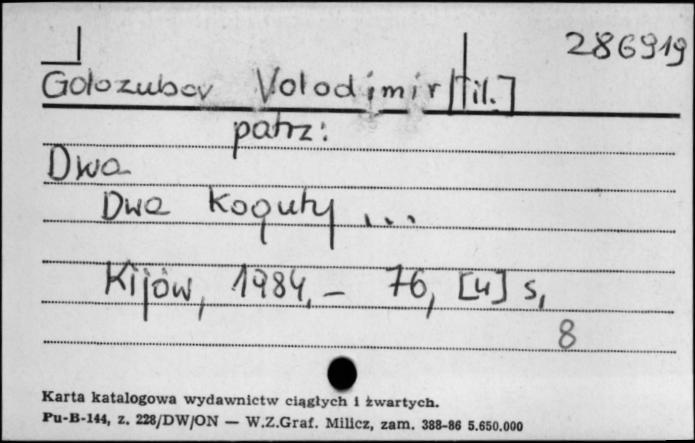 286919
Golozubov Volodimir [il.]
patrz:
Dwa
Dwa koguty ...
Kijów, 1984, – 76, [4] s,
8
Karta katalogowa wydawnictw ciągłych i żwartych.
Pu-B-144, z. 228/DW/ON — W.Z.Graf. Milicz, zam. 388-86 5.650.000